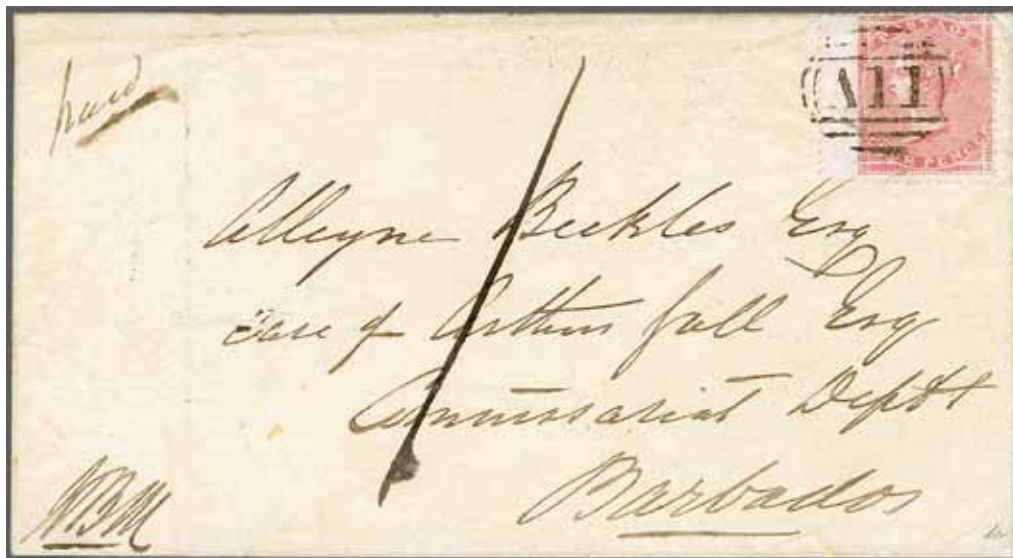 paid
POSTAGE
A11
PENCE
Alleyne Beckles Esq
Care of Arthur Gall Esq
Commissariat Deptt
Barbados
1